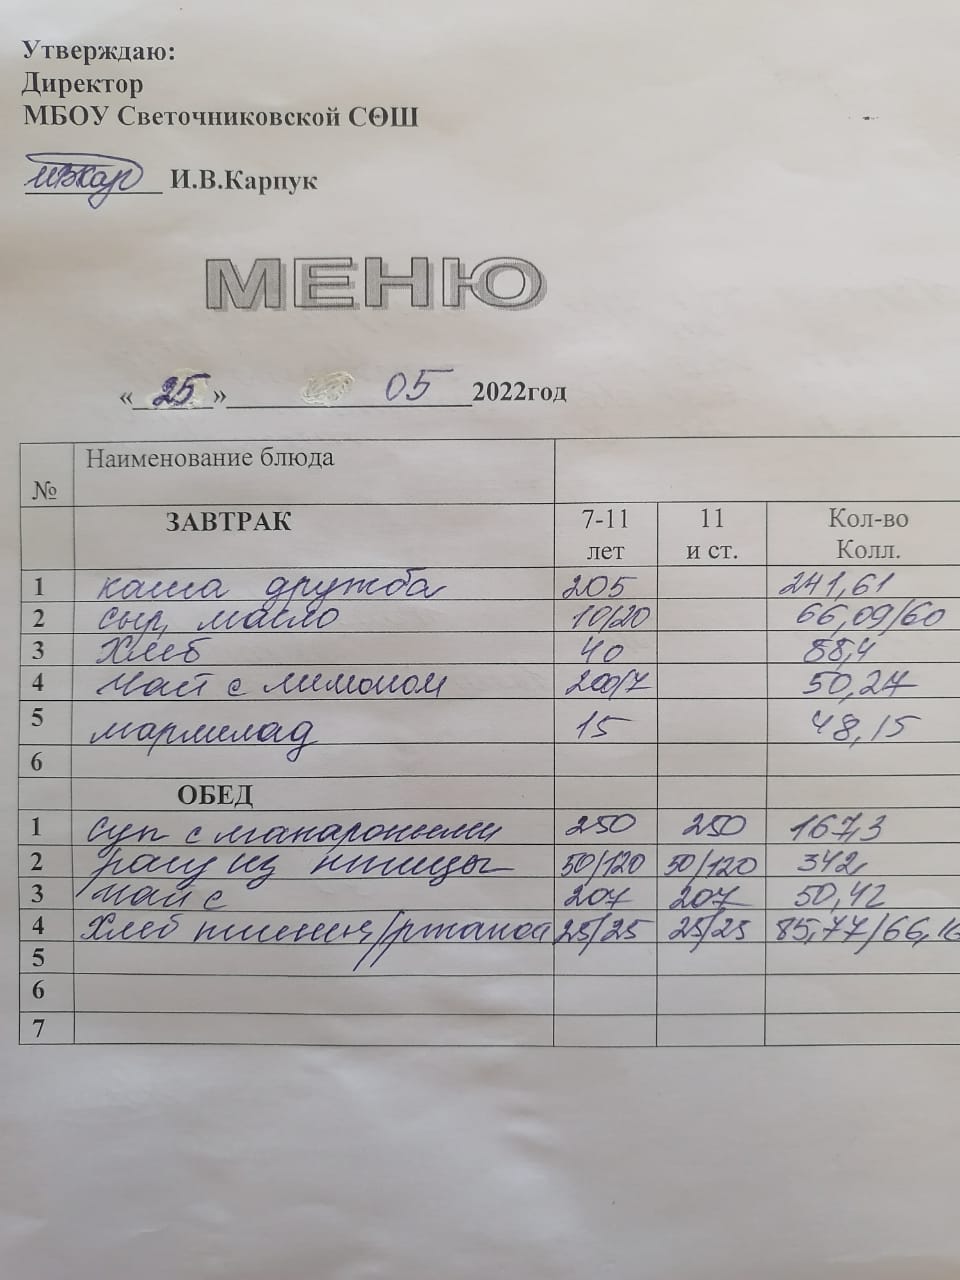 Утверждаю:
Директор
МБОУ Светочниковской СӨШ
И.В.Карпук
МЕНЮ
« 25 » 05 2022год
№ Наименование блюда
ЗАВТРАК 7-11 лет 11 и ст. Кол-во Колл.
1 каша дружба 205 241,61
2 сыр, масло 10/20 66,09/60
3 Хлеб 40 88,4
4 чай с лимоном 200/7 50,27
5 мармелад 15 48,15
6
ОБЕД
1 суп с макаронами 250 250 167,3
2 рагу из птицы 50/120 50/120 342
3 чай с 207 207 50,42
4 Хлеб пшенич/ржаной 25/25 25/25 85,77/66,16
5
6
7